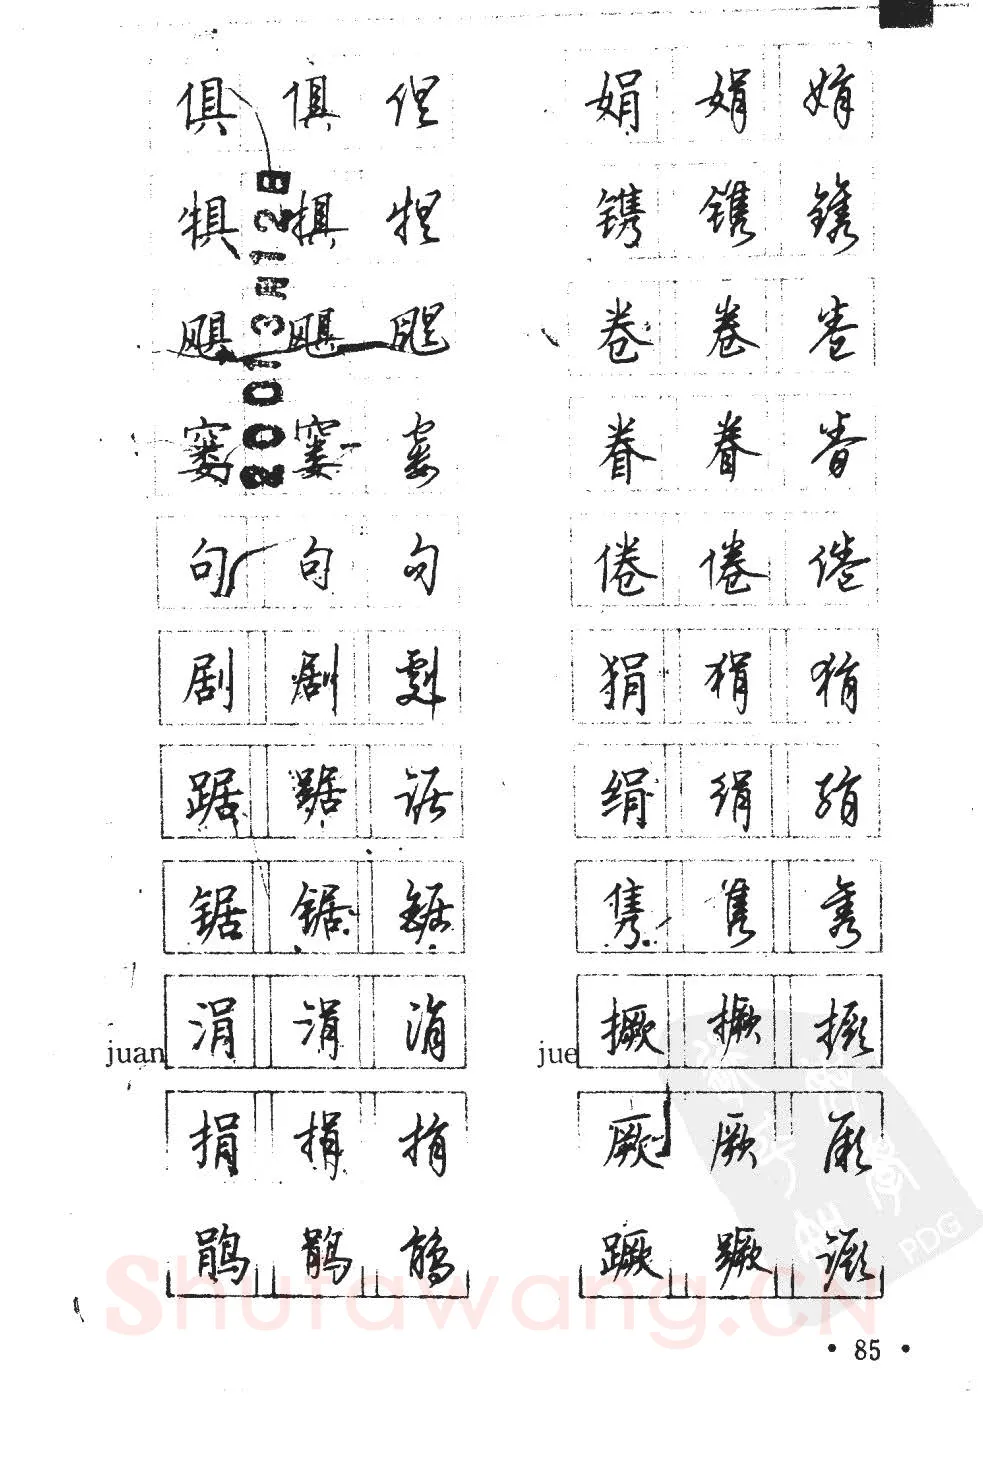 俱 俱 俱
犋 犋 犋
飓 飓 飓
窭 窭 窭
句 句 句
剧 剧 剧
踞 踞 踞
锯 锯 锯
juan 涓 涓 涓
捐 捐 捐
鹃 鹃 鹃
娟 娟 娟
镌 镌 镌
卷 卷 卷
眷 眷 眷
倦 倦 倦
狷 狷 狷
绢 绢 绢
隽 隽 隽
jue 撅 撅 撅
厥 厥 厥
蹶 蹶 蹶
• 85 •
Shufawang.CN
PDG